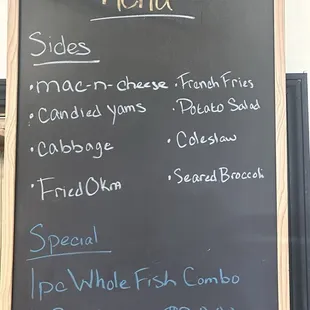 Menu
Sides
• Mac-n-cheese • French Fries
• Candied yams • Potato Salad
• Cabbage • Coleslaw
• Fried Okra • Seared Broccoli
Special
1pc Whole Fish Combo